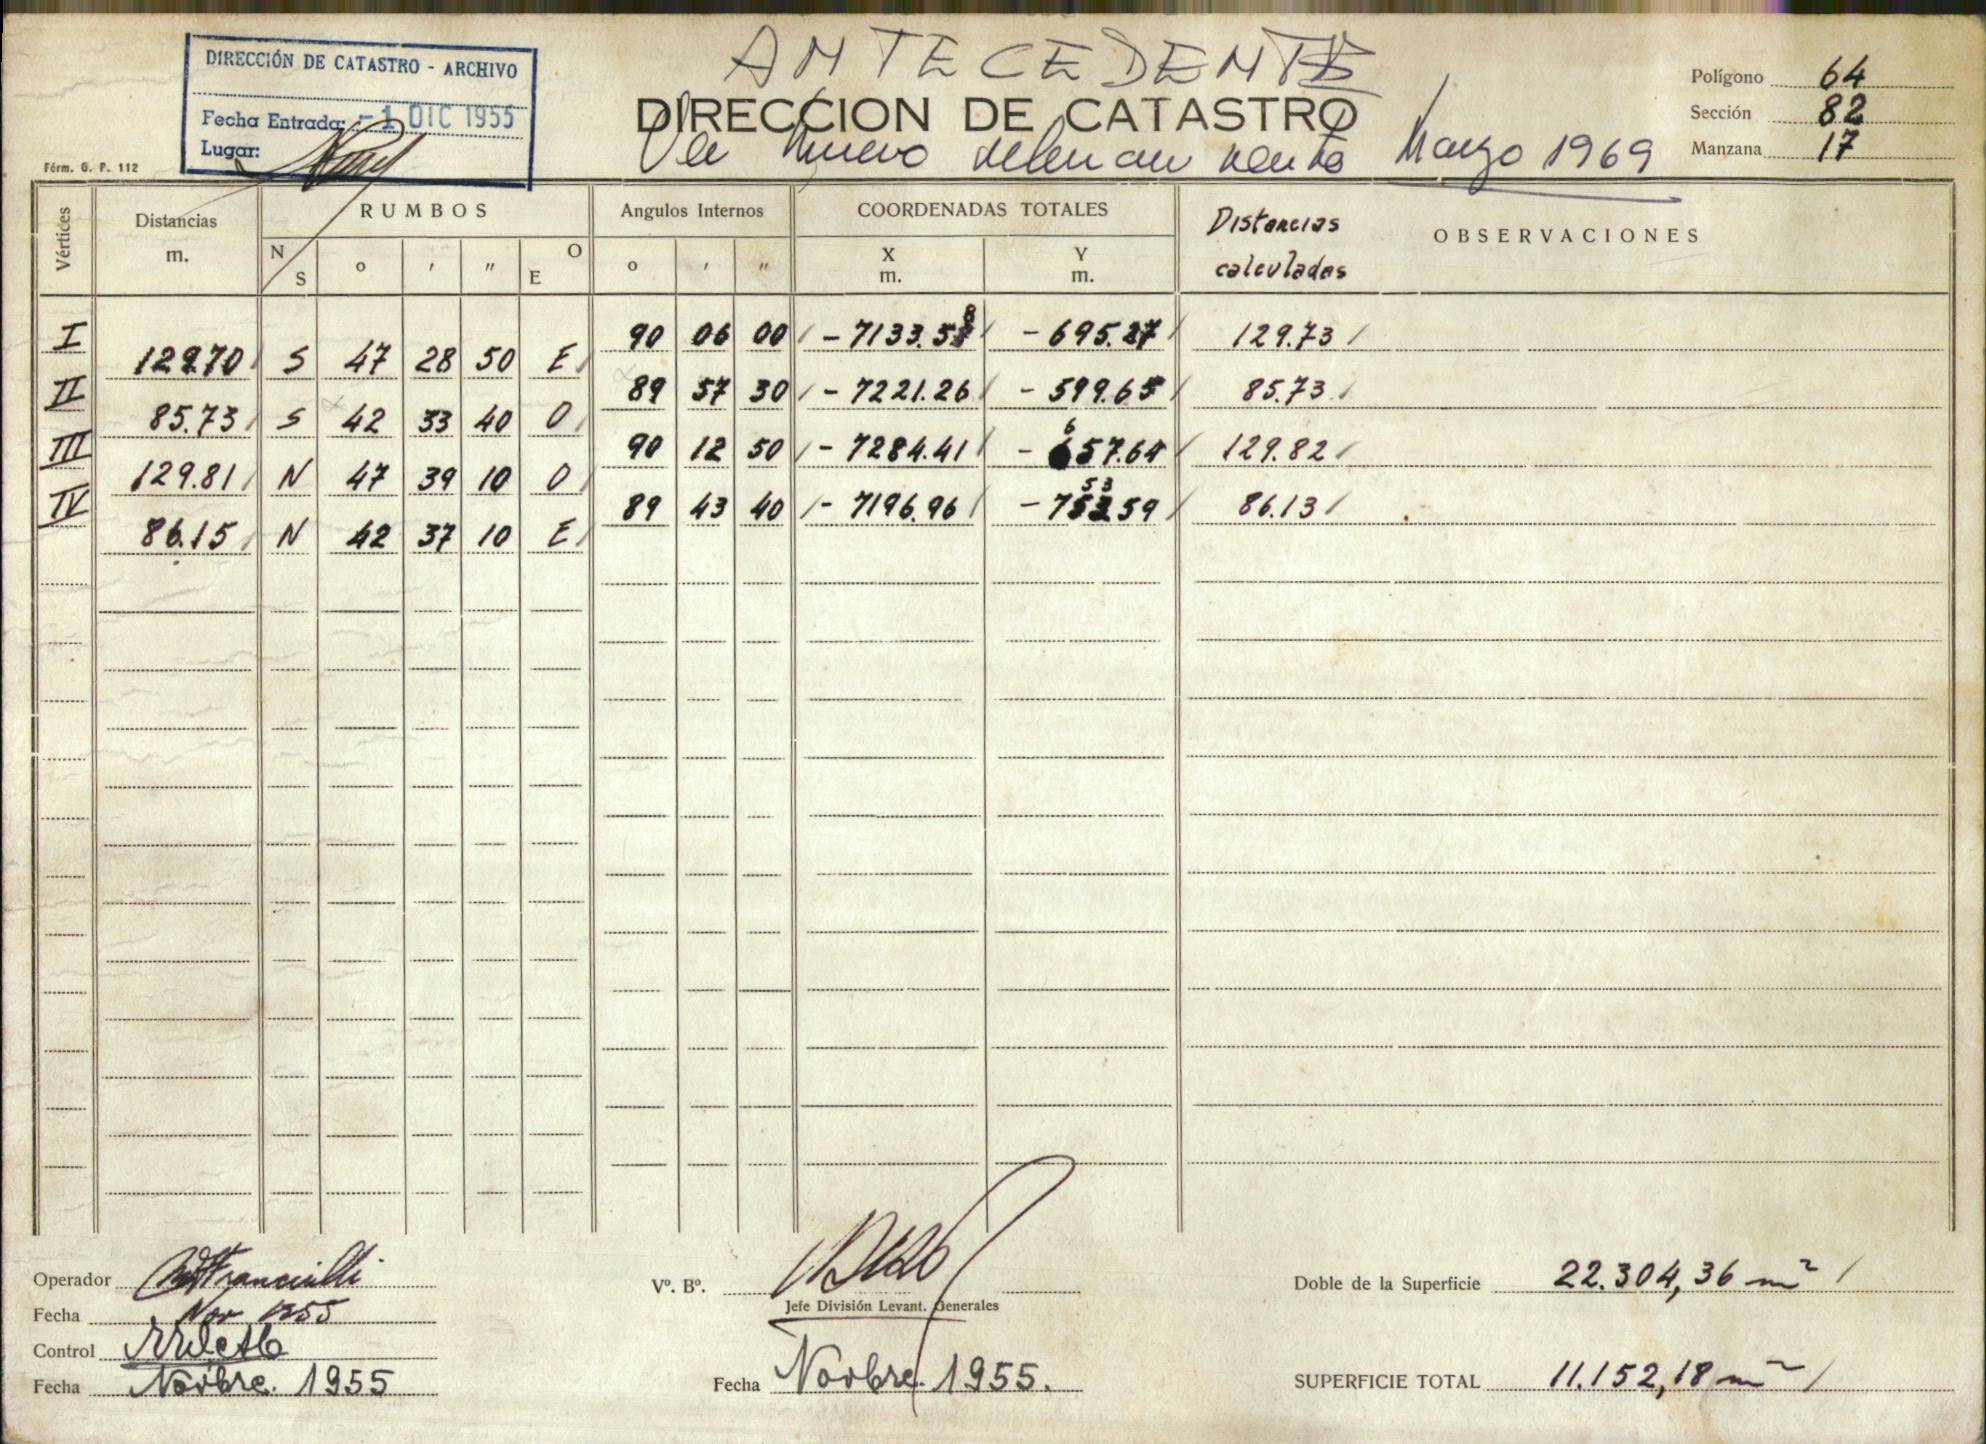 ANTECEDENTE
DIRECCIÓN DE CATASTRO - ARCHIVO
Fecha Entrada: -1 DIC 1955
Lugar:
DIRECCION DE CATASTRO
Ver nuevo Marzo 1969
Polígono 64
Sección 82
Manzana 17
Fórm. G. P. 112
Vértices Distancias m. RUMBOS N S o ' " O E Angulos Internos o ' " COORDENADAS TOTALES X m. Y m. Distancias calculadas OBSERVACIONES
I 90 06 00 - 7133.58 - 695.27 129.73
129.70 S 47 28 50 E
II 89 57 30 - 7221.26 - 599.65 85.73
85.73 S 42 33 40 O
III 90 12 50 - 7284.41 - 657.64 129.82
129.81 N 47 39 10 O
IV 89 43 40 - 7196.96 - 753.59 86.13
86.15 N 42 37 10 E
Operador
Fecha Nov 1955
Control
Fecha Novbre. 1955
Vº. Bº.
Jefe División Levant. Generales
Fecha Novbre. 1955.
Doble de la Superficie 22.304,36 m²
SUPERFICIE TOTAL 11.152,18 m²